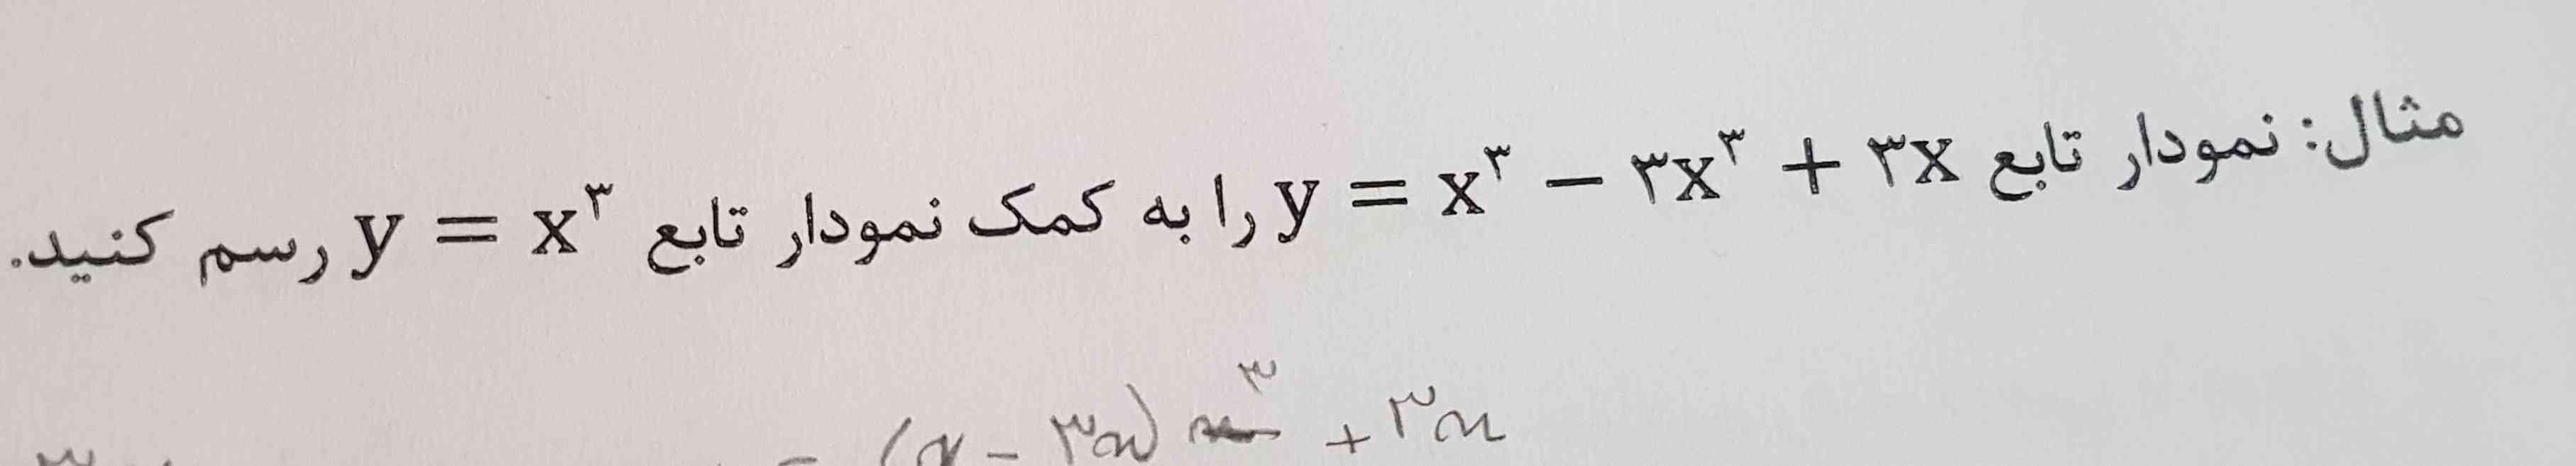 مثال: نمودار تابع y = x^۳ − ۳x^۳ + ۳x را به کمک نمودار تابع y = x^۳ رسم کنید.
(x − ۳x) ^۳ + ۳x